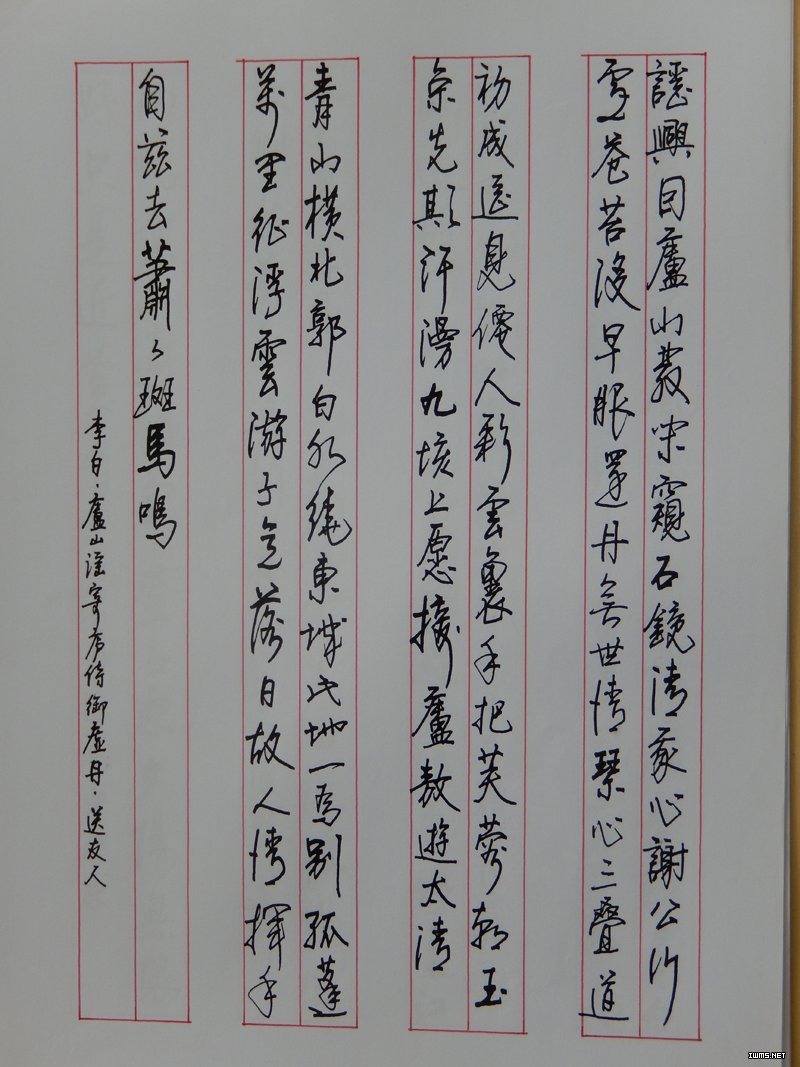 謡興因廬山發閑窺石鏡清我心謝公行
處蒼苔没早服還丹無世情琴心三疊道
初成遥見僊人彩雲裏手把芙蓉朝玉
京先期汗漫九垓上愿接廬敖遊太清
青山横北郭白水繞東城此地一為别孤蓬
萬里征浮雲游子意落日故人情揮手
自兹去蕭々斑馬鳴
李白·廬山謡寄卢侍御虚舟·送友人
IWMS.NET